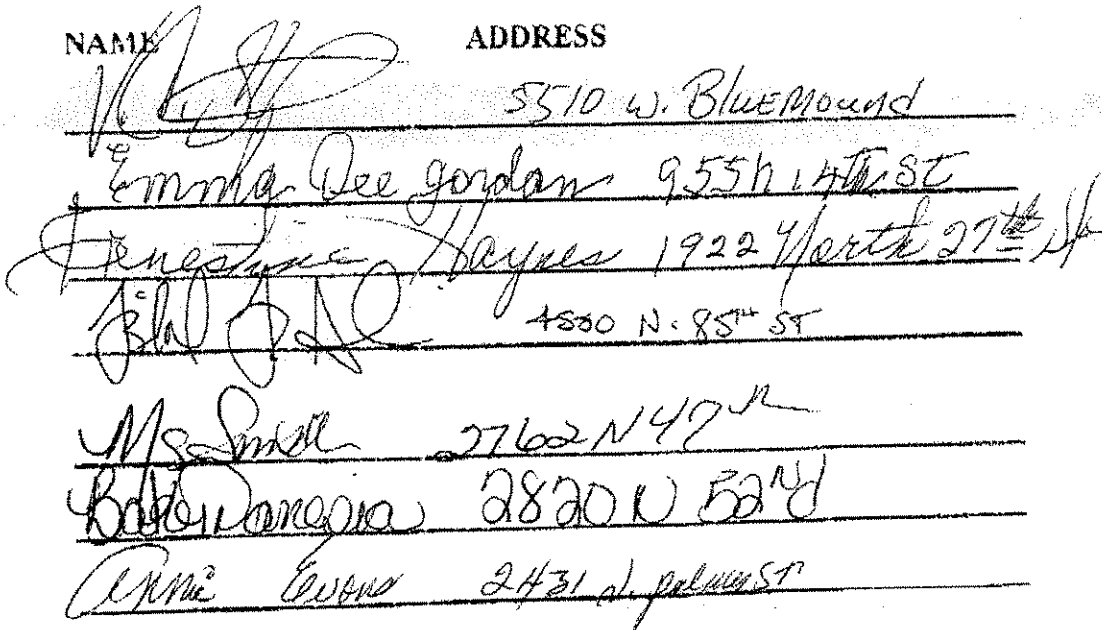 NAME ADDRESS
5510 W. BlueMound
Emma Dee gordon 955 n. 4th St
Haynes 1922 North 27th St
4550 N. 85TH ST
Ms Smith 2762 N 47th
2820 N 52Nd
Annie Evans 2431 N. palmer ST